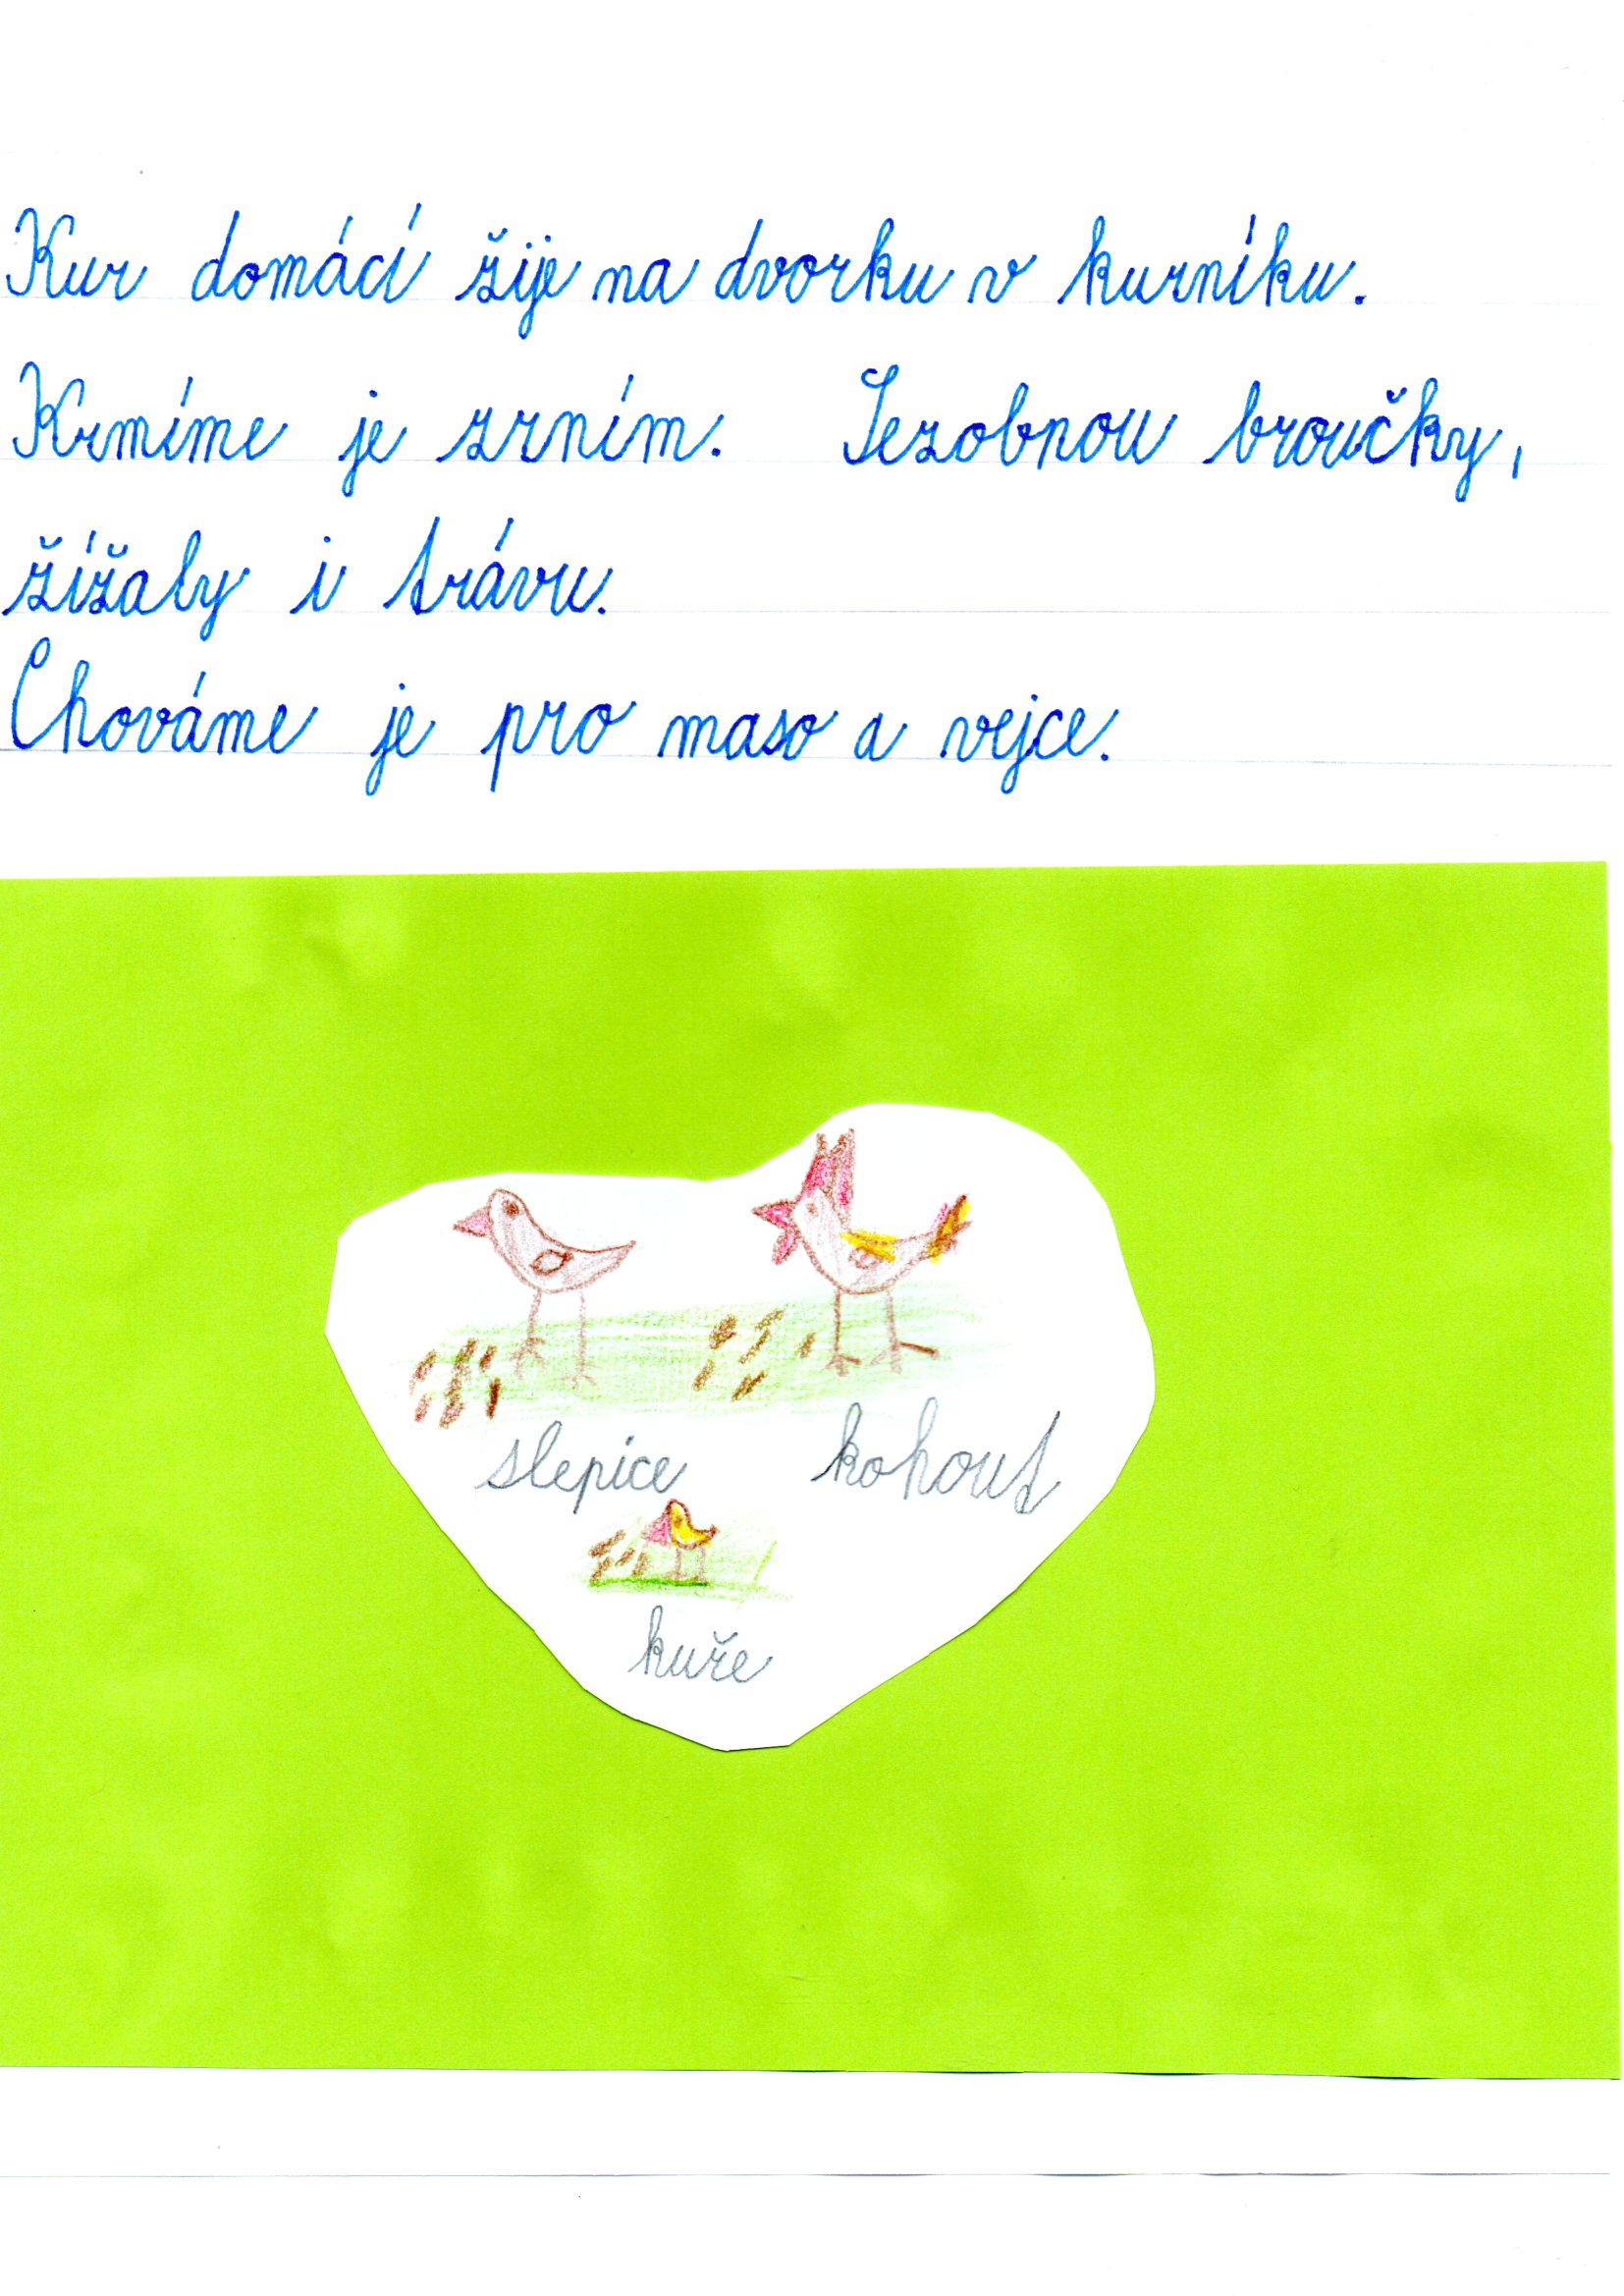 Kur domácí žije na dvorku v kurníku.
Krmíme je zrním. Sezobnou broučky,
žížaly i trávu.
Chováme je pro maso a vejce.
slepice kohout
kuře